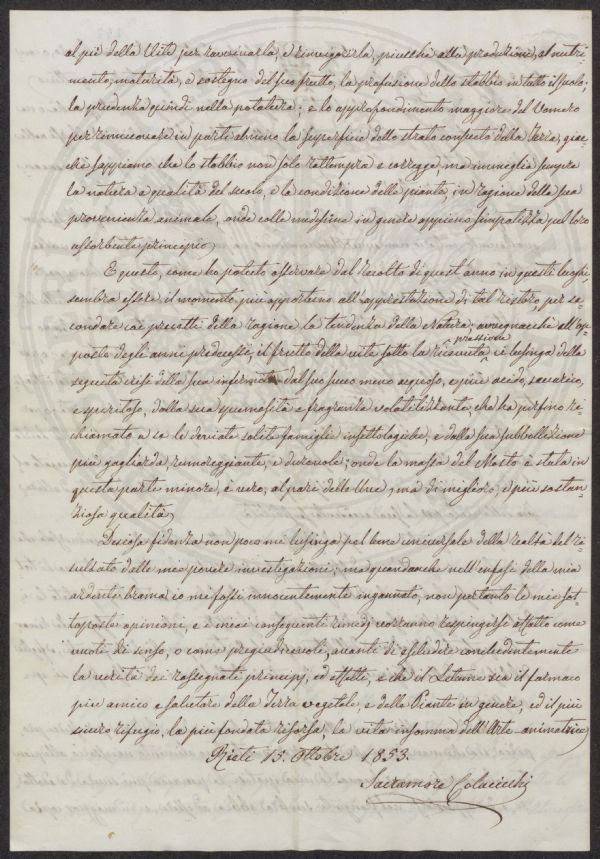 al piè della Vite per ravvivarla, e rinvigorirla, piucchè alla produzione, al nutri-
mento, maturità, e sostegno del suo frutto, la profusione dello stabbio in tutto il suolo;
la prudenza quindi nella potatura; e lo approfondimento maggiore del Vomero
per rinnuovare in parte almeno la superficie dello strato consueto della Terra, giac-
chè sappiamo che lo stabbio non solo rattempra e corregge, ma immeglia sempre
la natura e qualità del suolo, e la condizione delle piante, in ragione della sua
provenienza animale, onde colle medesime in genere appieno simpatizza pel loro
assorbente principio.
E questo, come ho potuto osservare dal Raccolto di quest'anno in questi luoghi,
sembra essere il momento più opportuno all'apprestazione di tal ristoro, per se-
condare coi precetti della ragione la tendenza della Natura; avvegnacchè all'op-
posto degli anni predecessi, il frutto della vite sotto la pressione ci lusinga della
seguita crisi della sua infermità dal suo succo meno acquoso, e più acido, zuccarico,
e spiritoso, dalla sua spumosità e fragranza volatilizzante, che ha perfino ri-
chiamato a se le deviate solite famiglie insettologiche, e dalla sua subbollizione
più gagliarda, rumoreggiante, e durevole; onde la massa del Mosto è stata in
questa parte minore, è vero, al pari delle Uve, ma di migliore, e più sostan-
ziosa qualità.
Decisa fidanza non poco mi lusinga pel bene universale della realtà del ri-
sultato delle mie povere investigazioni; ma quandanche nell'enfasi della mia
ardente brama io mi fossi innocentemente ingannato, non pertanto le mie sot-
toposte opinioni, e i miei conseguenti rimedj vorranno respingersi affatto come
vuoti di senso, o come pregiudicevoli, avanti di escludere concludentemente
la verità dei rassegnati principj, ed effetti, e che il Letame sia il farmaco
più amico e salutare della Terra vegetale, e delle Piante in genere, ed il più
sicuro rifugio, la più fondata risorsa, la vita insomma dell'Arte animatrice.
Rieti 15. Ottobre 1853.
Sacramore Colaicchi